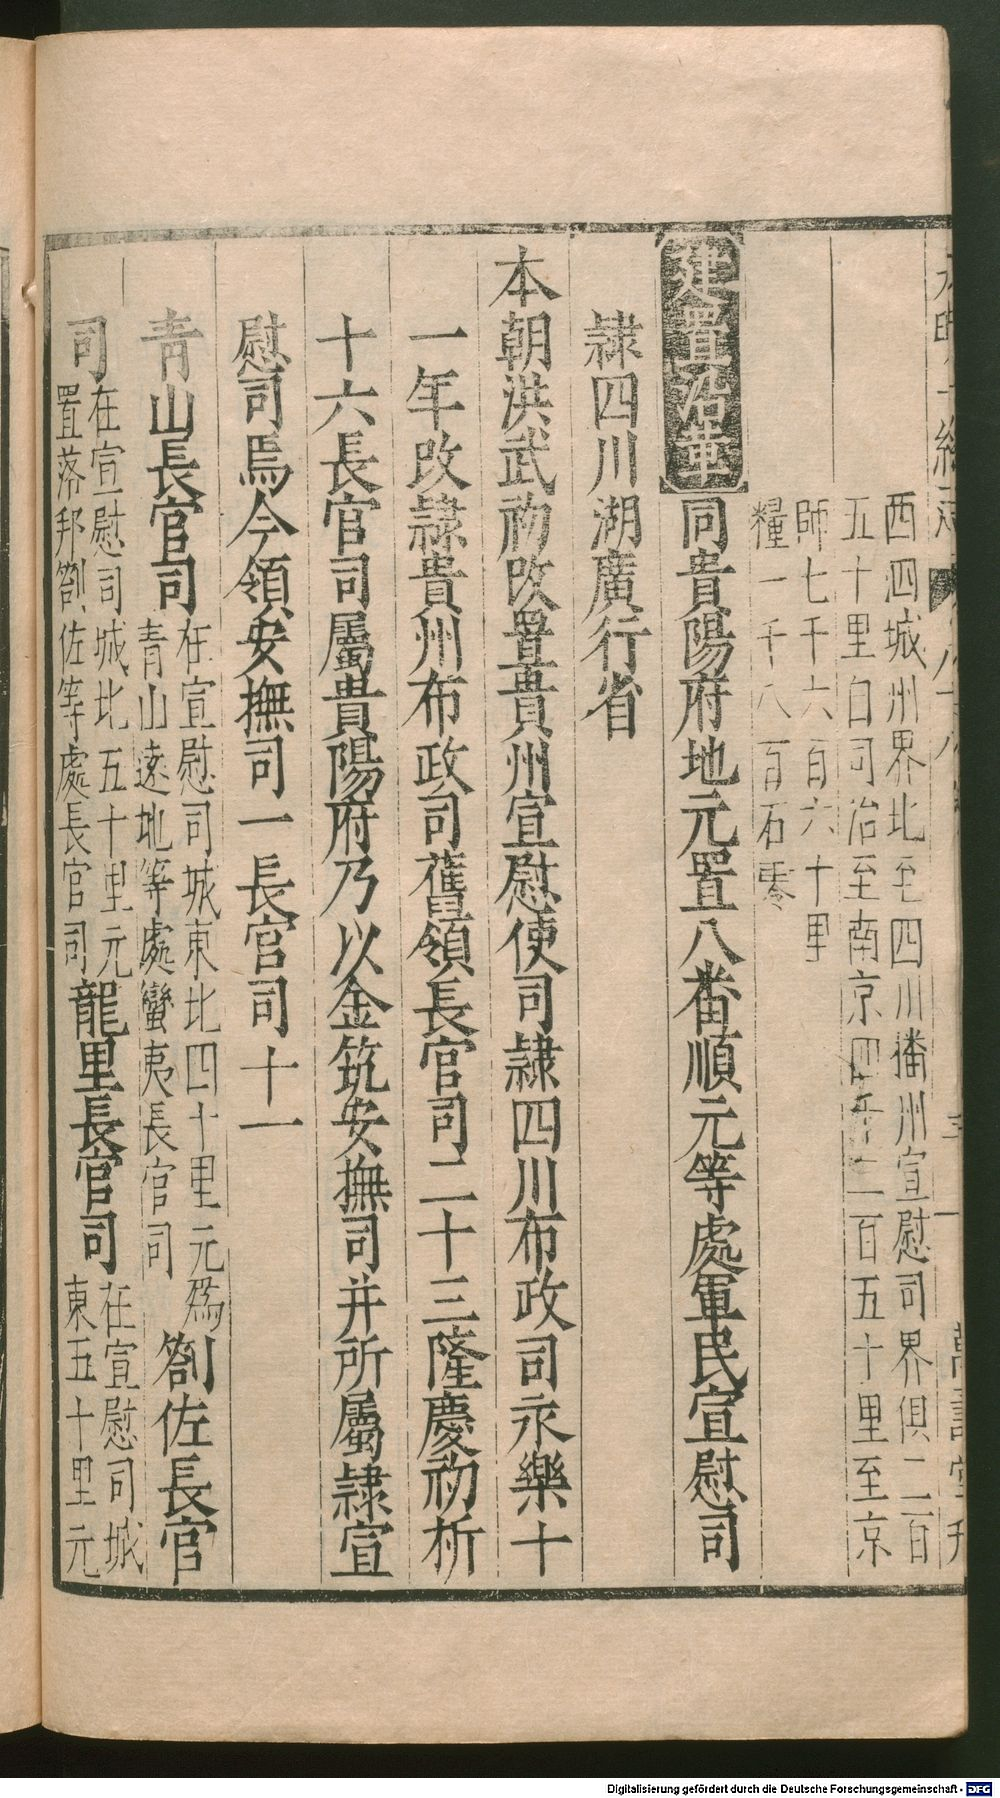 西泗城州界北至四川播州宣慰司界俱二百
五十里自司治至南京四千二百五十里至京
師七千六百六十里
糧一千八百石零
建置沿革同貴陽府地元置八番順元等處軍民宣慰司
隷四川湖廣行省
本朝洪武初改置貴州宣慰使司隷四川布政司永樂十
一年改隷貴州布政司舊領長官司二十三隆慶初析
十六長官司屬貴陽府乃以金筑安撫司并所屬隷宣
慰司焉今領安撫司一長官司十一
青山長官司
在宣慰司城東北四十里元為
青山遠地等處蠻夷長官司
劄佐長官
司
在宣慰司城北五十里元
置落邦劄佐等處長官司
龍里長官司
在宣慰司城
東五十里元
Digitalisierung gefördert durch die Deutsche Forschungsgemeinschaft - DFG